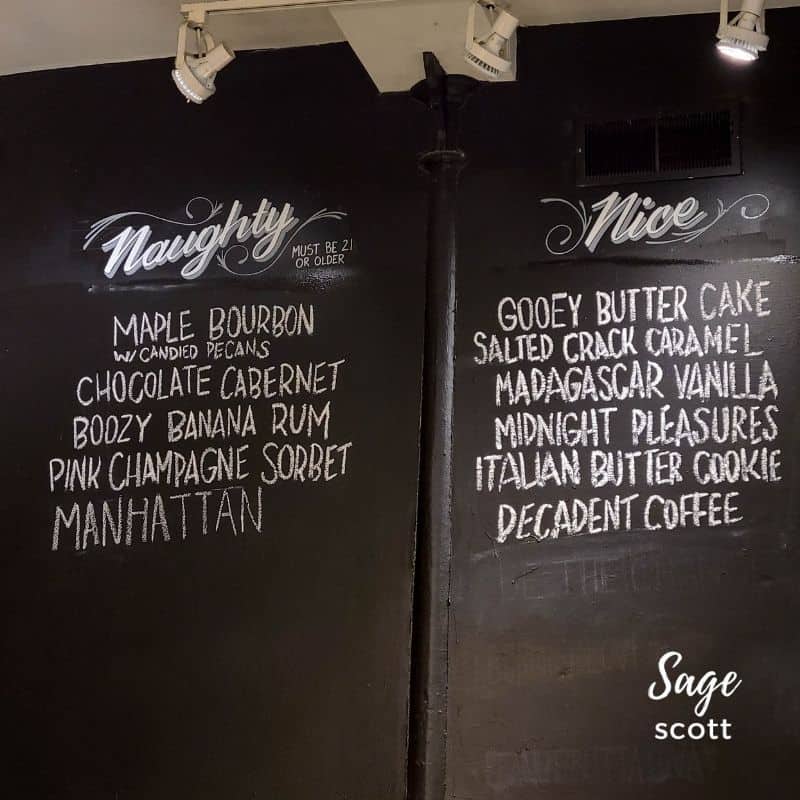 Naughty
MUST BE 21
OR OLDER
MAPLE BOURBON
W/ CANDIED PECANS
CHOCOLATE CABERNET
BOOZY BANANA RUM
PINK CHAMPAGNE SORBET
MANHATTAN
Nice
GOOEY BUTTER CAKE
SALTED CRACK CARAMEL
MADAGASCAR VANILLA
MIDNIGHT PLEASURES
ITALIAN BUTTER COOKIE
DECADENT COFFEE
Sage
scott